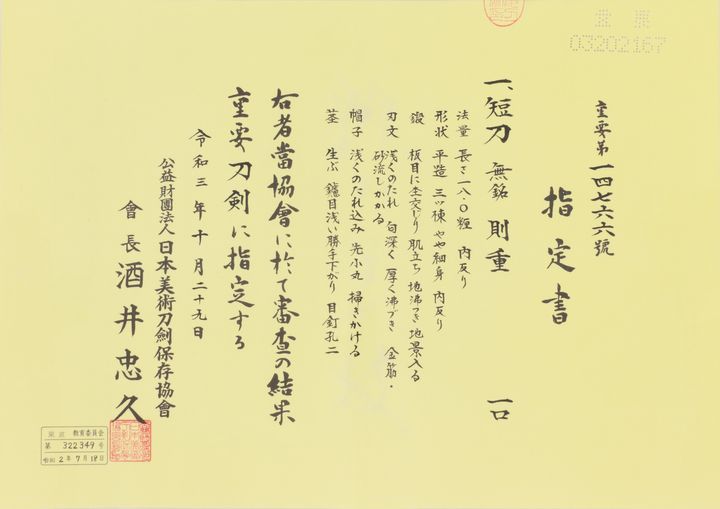 重要
03202167
重要第一四七六六號
指定書
一、短刀 無銘 則重 一口
法量 長さ一八・〇糎 内反り
形状 平造 三ッ棟 やや細身 内反り
鍛 板目に杢交じり 肌立ち 地沸つき 地景入る
刃文 浅くのたれ 匂深く 厚く沸づき 金筋・
砂流しかかる
帽子 浅くのたれ込み 先小丸 掃きかける
茎 生ぶ 鑢目浅い勝手下がり 目釘孔二
右者當協會に於て審査の結果
重要刀剣に指定する
令和三年十月二十九日
公益財團法人日本美術刀劍保存協會
會長 酒井忠久
東京 教育委員会
第 322349 号
令和2年7月14日